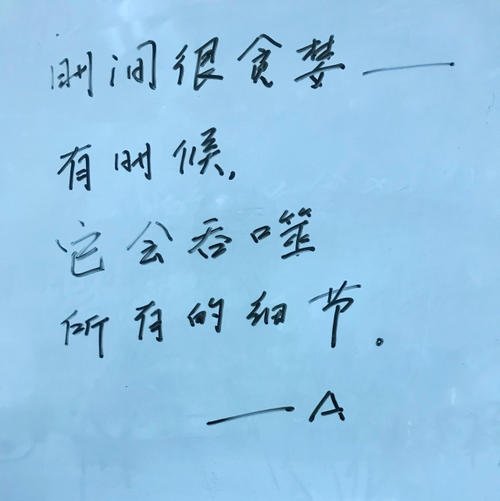 时间很贪婪——
有时候,
它会吞噬
所有的细节。
——A